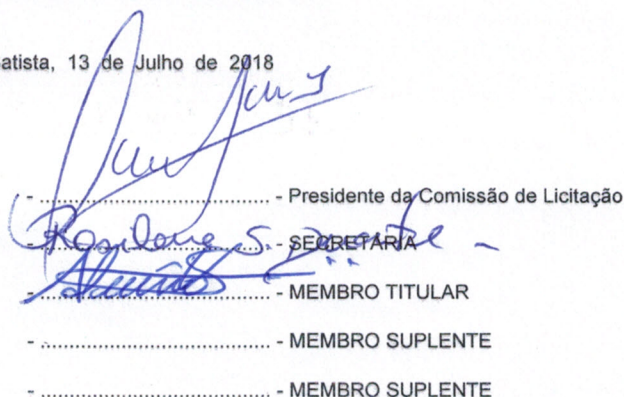 atista, 13 de Julho de 2018
- ................................ - Presidente da Comissão de Licitação
- Rosilane S. - SECRETÁRIA
- ................................ - MEMBRO TITULAR
- ................................ - MEMBRO SUPLENTE
- ................................ - MEMBRO SUPLENTE